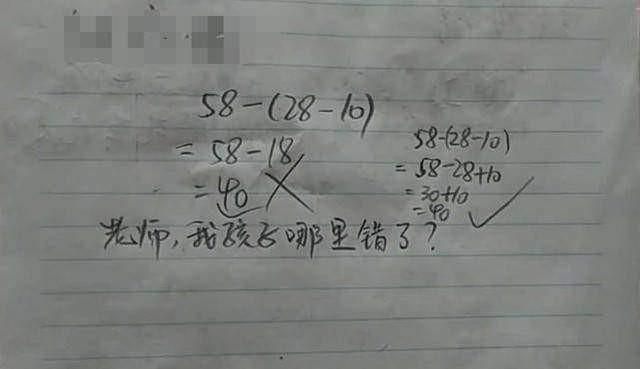 58-(28-10)
= 58-18
= 40
58-(28-10)
= 58-28+10
= 30+10
= 40
老师,我孩子哪里错了?